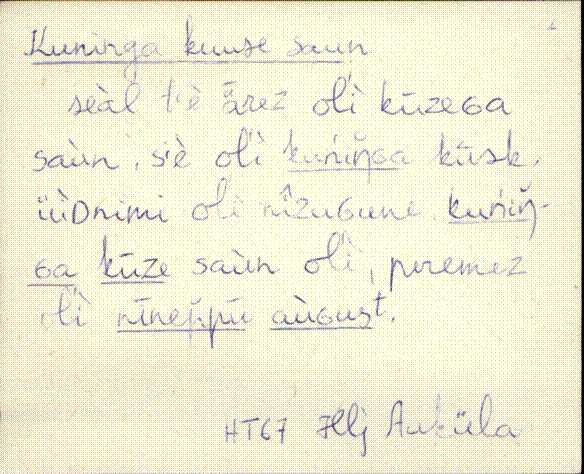 Kuninga kuuse saun
seàl t'è ärez olì kūzeɢa
saùn, s'è olì kuńiŋ̆ɢa kūsk,
üùDnimi olì nîzuɢune. kuńiŋ̆-
ɢa kūze saùn olì, peremez
olì nīnepū aùɢust.
HT67 Hlj Auküla